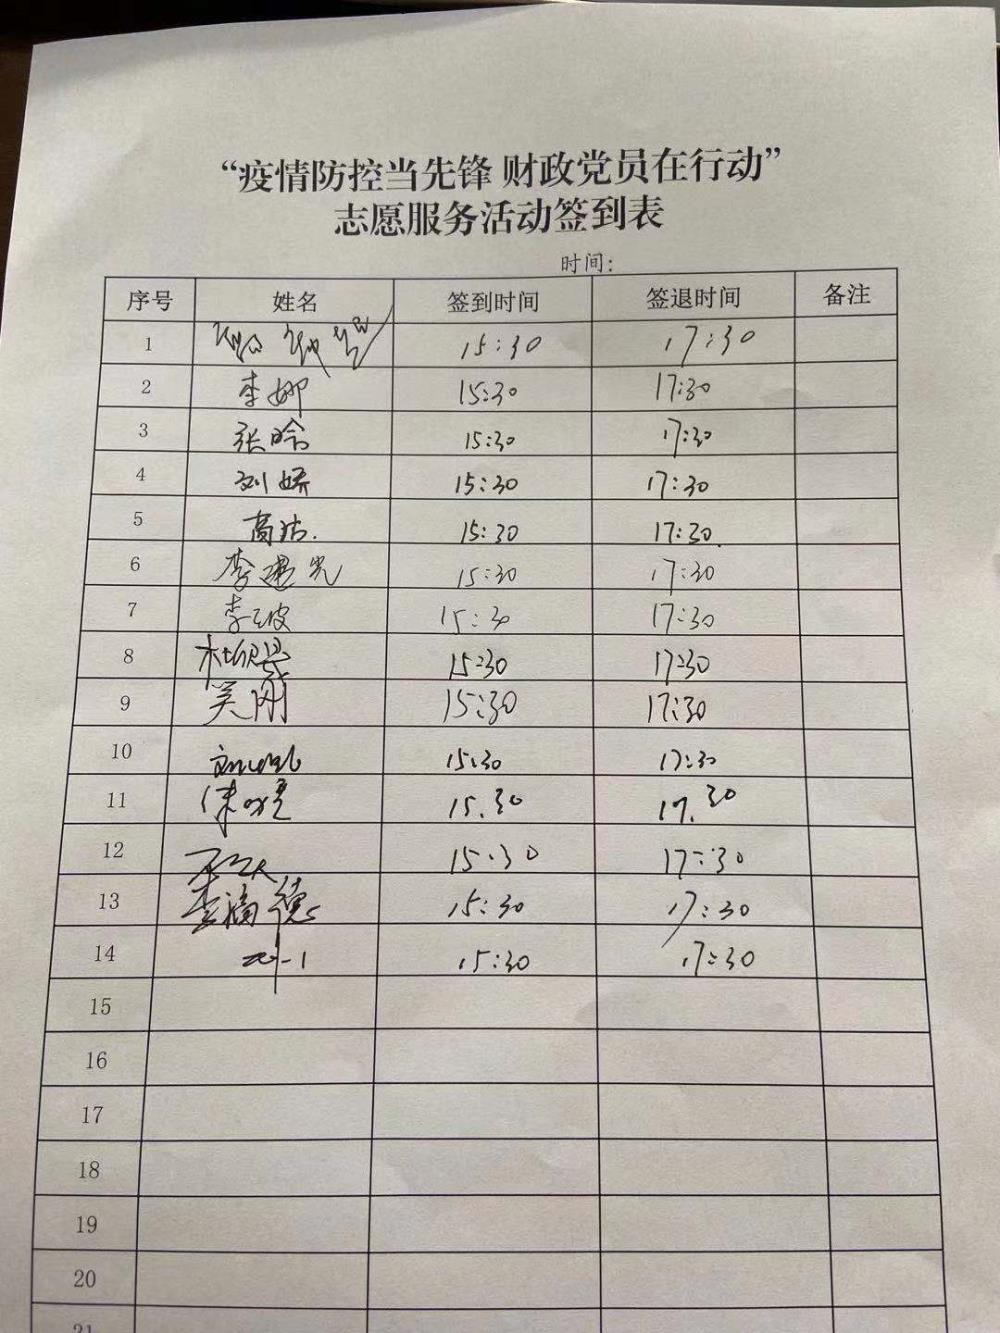 “疫情防控当先锋 财政党员在行动”
志愿服务活动签到表
时间:
序号 姓名 签到时间 签退时间 备注
1 15:30 17:30
2 李娜 15:30 17:30
3 张晗 15:30 17:30
4 刘娇 15:30 17:30
5 高洁. 15:30 17:30.
6 李建光 15:30 17:30
7 李波 15:30 17:30
8 15:30 17:30
9 吴刚 15:30 17:30
10 15:30 17:30
11 15.30 17.30
12 15:30 17:30
13 李满德 15:30 17:30
14 15:30 17:30
15
16
17
18
19
20
21